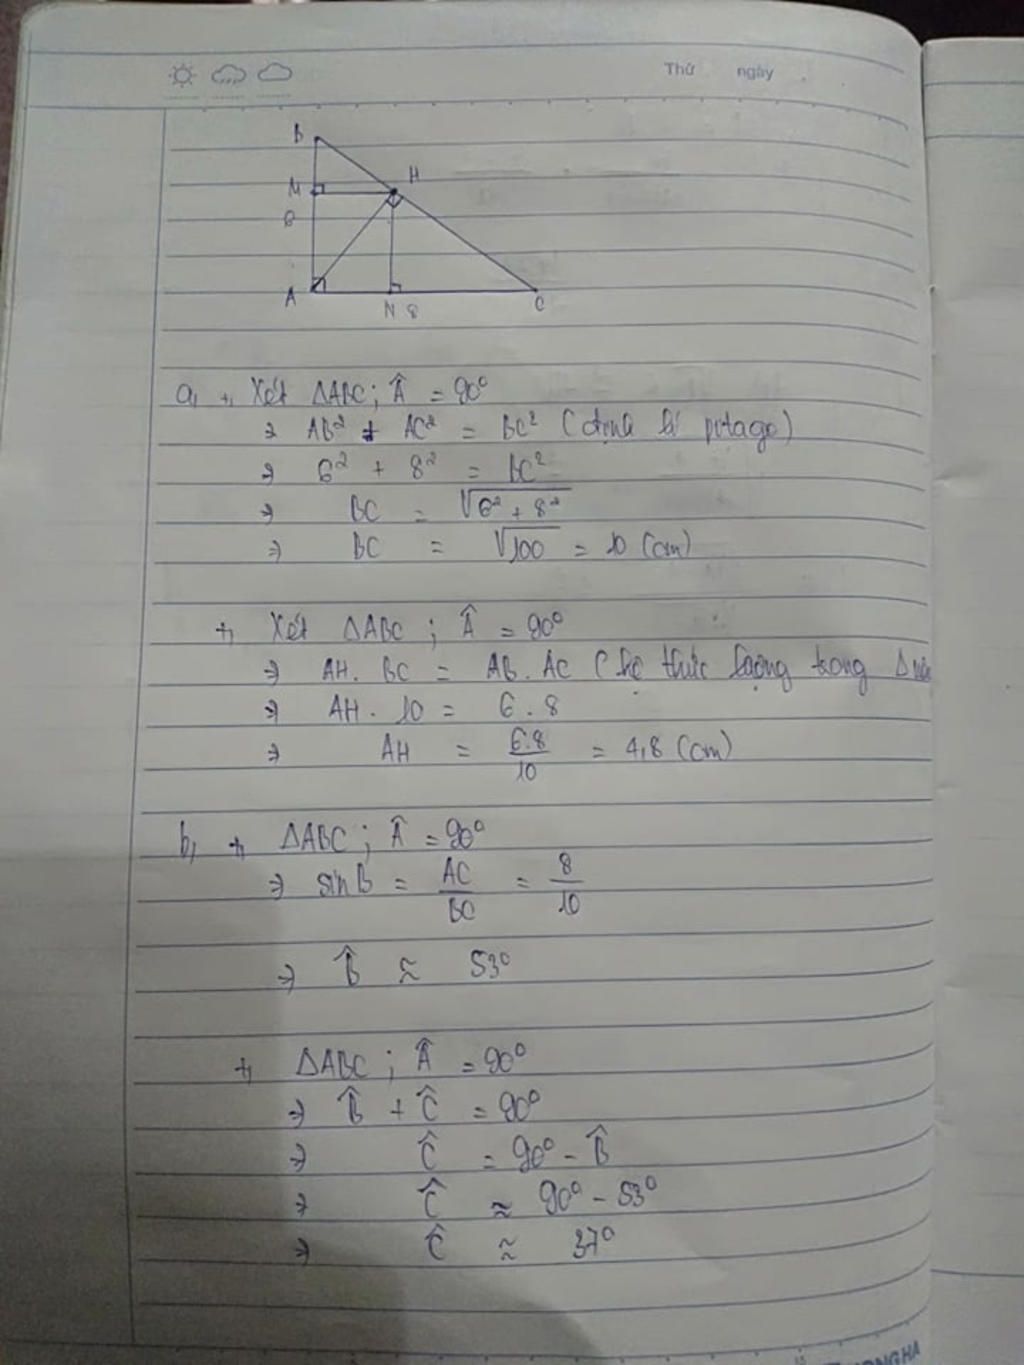 Thứ ngày
B
H
M
6
A
N 8
C
a, +, Xét ΔABC; Â = 90°
⇒ AB² + AC² = BC² (định lí pitago)
⇒ 6² + 8² = BC²
⇒ BC = √(6² + 8²)
⇒ BC = √100 = 10 (cm)
+, Xét ΔABC; Â = 90°
⇒ AH. BC = AB. AC (hệ thức lượng trong Δ
⇒ AH. 10 = 6.8
⇒ AH = 6.8/10 = 4,8 (cm)
b, +, ΔABC; Â = 90°
⇒ sinB = AC/BC = 8/10
⇒ B̂ ≈ 53°
+, ΔABC; Â = 90°
⇒ B̂ + Ĉ = 90°
⇒ Ĉ = 90° - B̂
⇒ Ĉ ≈ 90° - 53°
⇒ Ĉ ≈ 37°